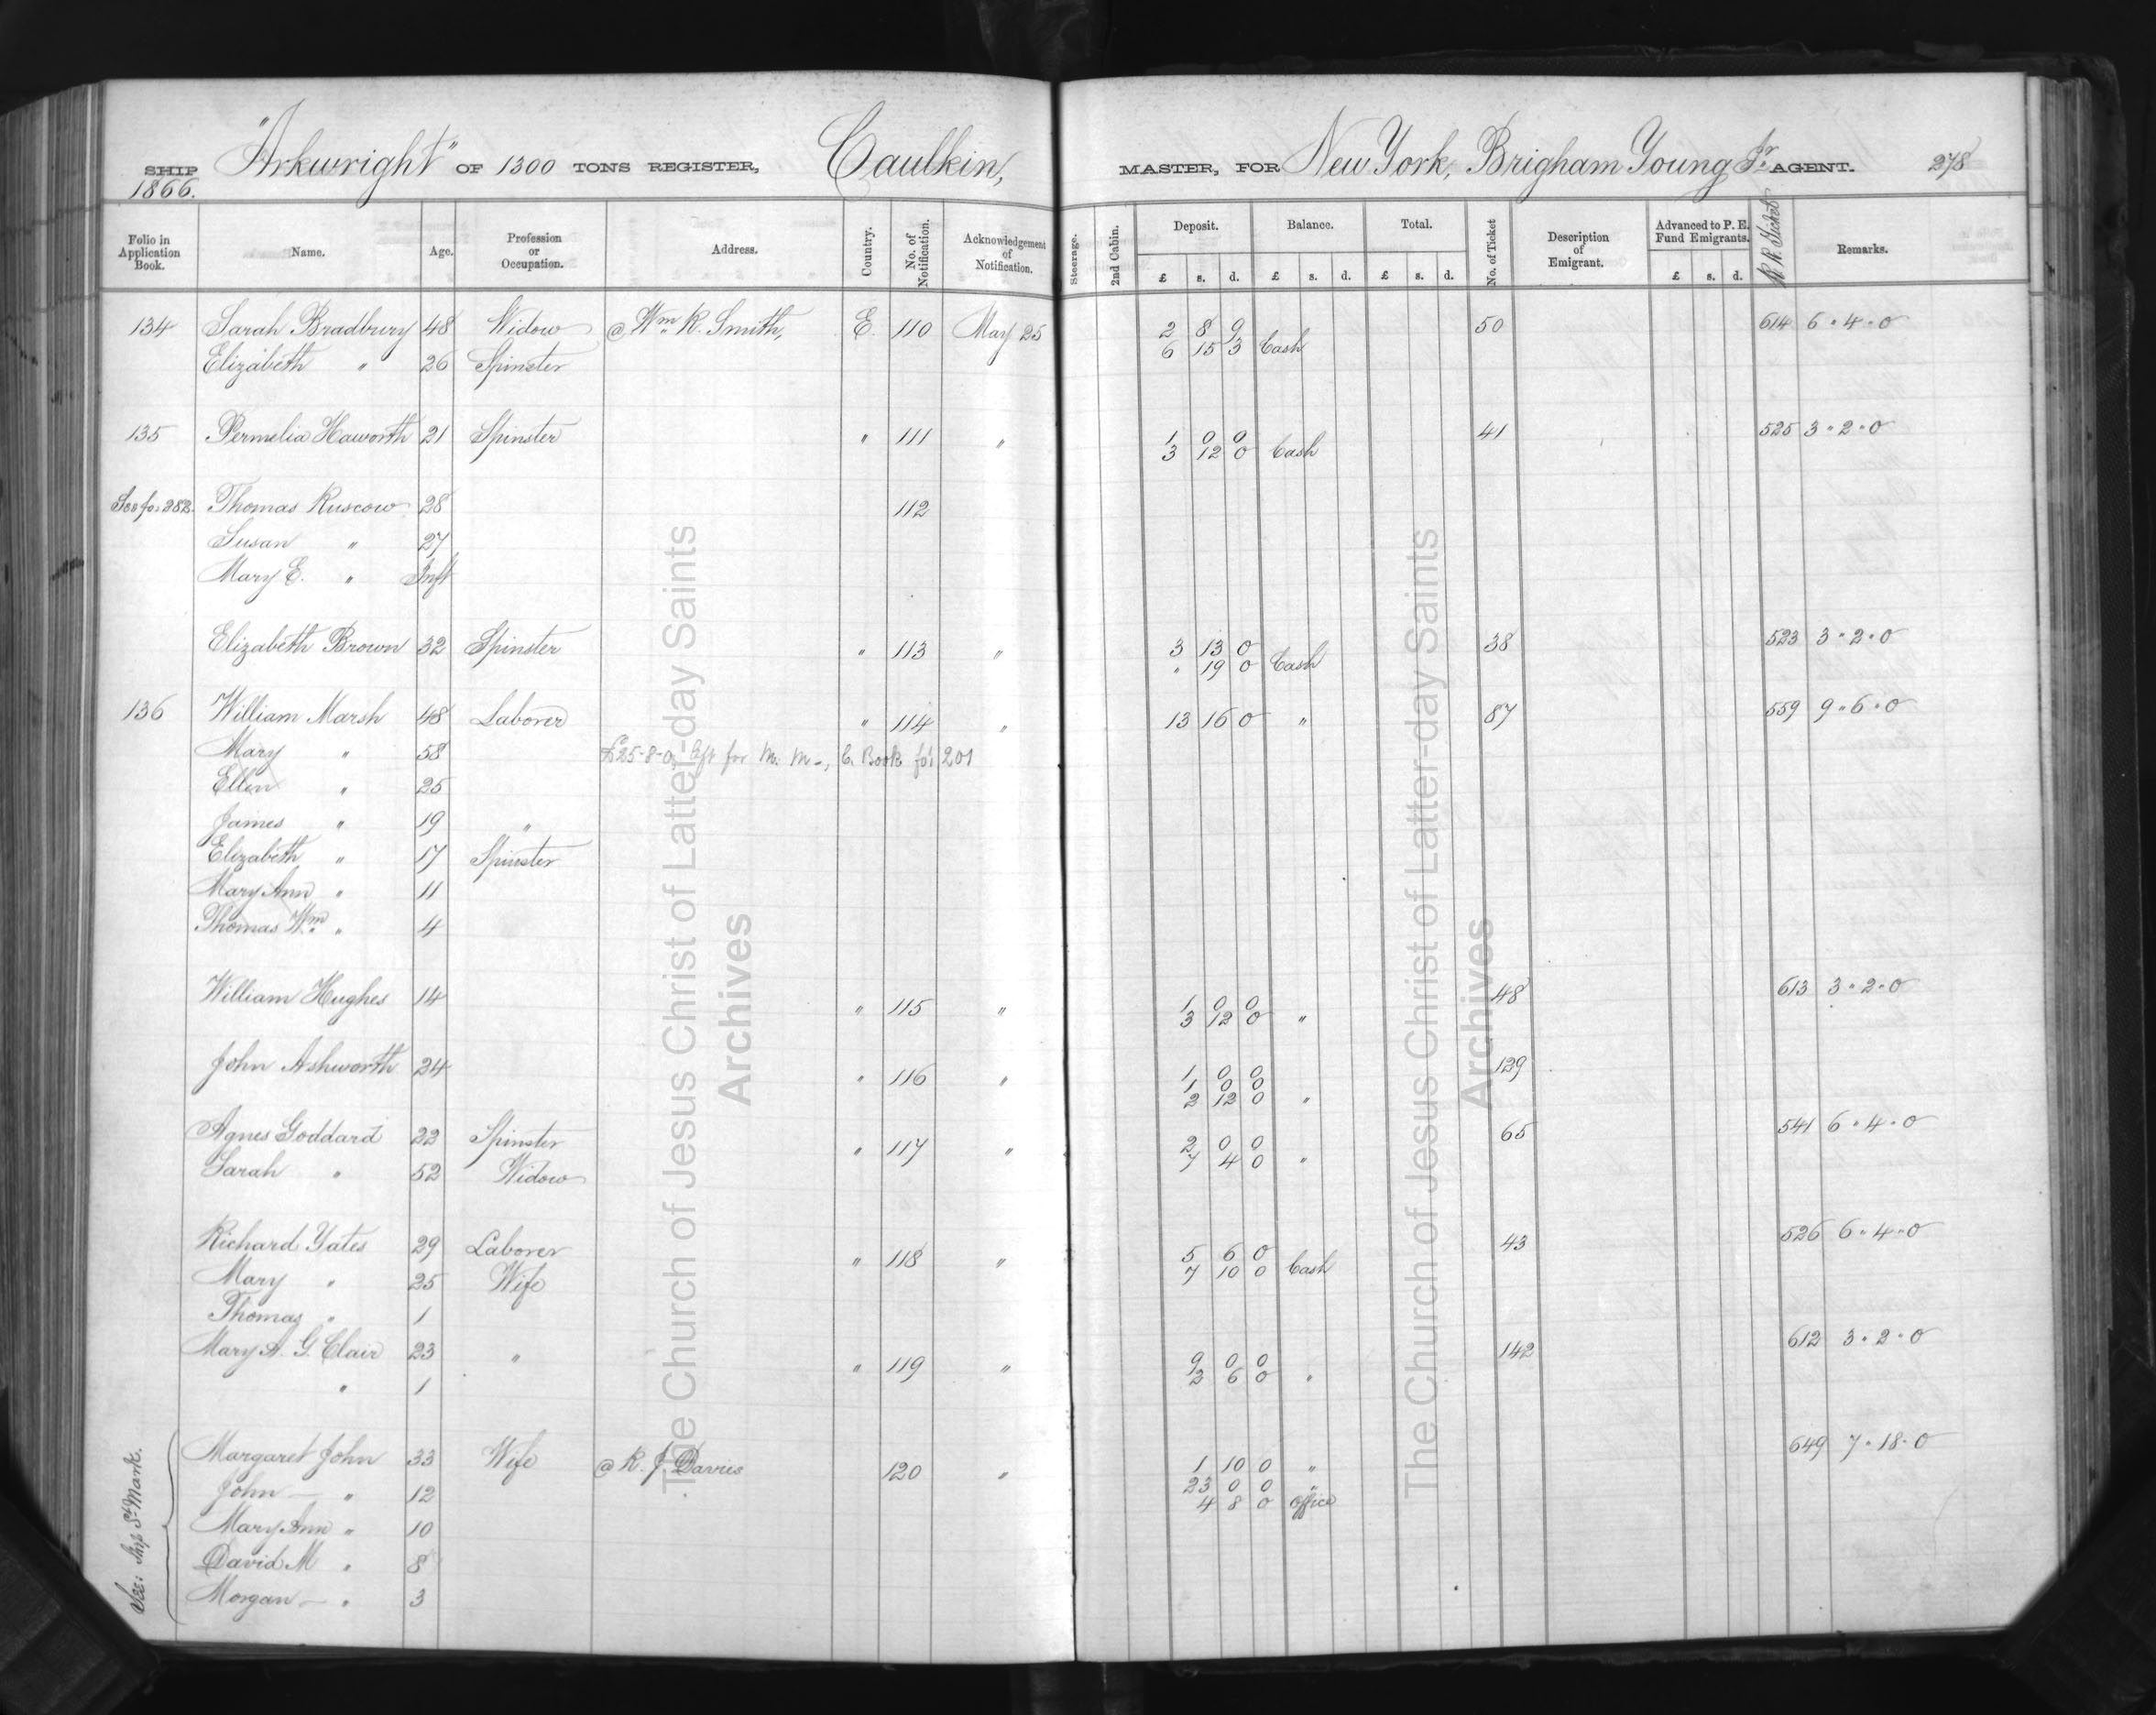 SHIP "Arkwright" OF 1300 TONS REGISTER, Caulkin, MASTER, FOR New York, Brigham Young Jr. AGENT. 278
1866.
Folio in Application Book. Name. Age. Profession or Occupation. Address. Country. No. of Notification. Acknowledgement of Notification. Steerage. 2nd Cabin. Deposit. Balance. Total. No. of Ticket Description of Emigrant. Advanced to P. E. Fund Emigrants. R. R. Ticket Remarks.
£ s. d. £ s. d. £ s. d. £ s. d.
134 Sarah Bradbury 48 Widow @ Wm. R. Smith, E. 110 May 25 2 8 9 50 614 6 " 4 " 0
6 15 3 Cash
Elizabeth " 26 Spinster
135 Permelia Haworth 21 Spinster " 111 " 1 0 0 41 525 3 " 2 " 0
3 12 0 Cash
See fo. 282. Thomas Ruscow 28 112
Susan " 27
Mary E. " Inft
Elizabeth Brown 32 Spinster " 113 " 3 13 0 38 523 3 " 2 " 0
" 19 0 Cash
136 William Marsh 48 Laborer " 114 " 13 16 0 " 87 559 9 " 6 " 0
Mary " 58 £25-8-0, for M. M-, C. Book fo. 201
Ellen " 25
James " 19 "
Elizabeth " 17 Spinster
Mary Ann " 11
Thomas Wm. " 4
William Hughes 14 " 115 " 1 0 0 48 613 3 " 2 " 0
3 12 0 "
John Ashworth 24 " 116 " 1 0 0 129
1 0 0
2 12 0 "
Agnes Goddard 22 Spinster " 117 " 2 0 0 65 541 6 " 4 " 0
7 4 0 "
Sarah " 52 Widow
Richard Yates 29 Laborer " 118 " 5 6 0 43 526 6 " 4 " 0
7 10 0 Cash
Mary " 25 Wife
Thomas " 1
Mary A. G. Clair 23 " " 119 " 9 0 0 142 612 3 " 2 " 0
2 6 0 "
" 1
See: Ship St. Mark.
Margaret John 33 Wife @ R. J. Davies 120 " 1 10 0 " 649 7 " 18 " 0
John " 12 23 0 0 "
4 8 0 Office
Mary Ann " 10
David M " 8
Morgan " 3
The Church of Jesus Christ of Latter-day Saints
Archives
The Church of Jesus Christ of Latter-day Saints
Archives